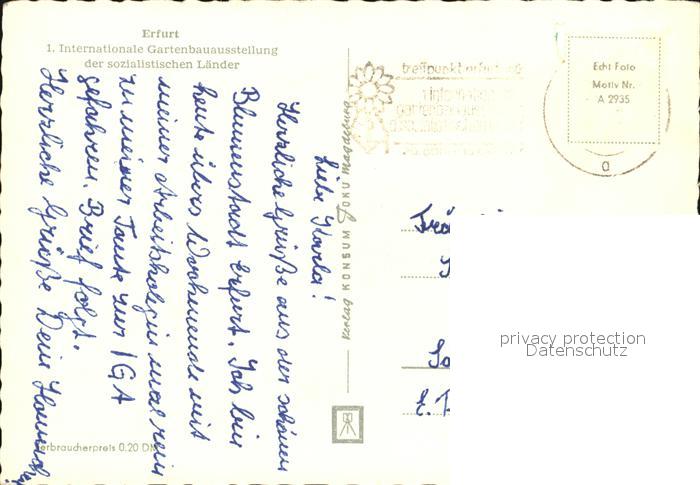 Erfurt
1. Internationale Gartenbauausstellung
der sozialistischen Länder
treffpunkt erfurt
Echt Foto
Motiv Nr.
A 2935
a
Liebe
Herzliche Grüße aus der schönen
Blumenstadt Erfurt. Ich bin
heute übers Wochenende mit
meiner Arbeitskollegin mal rein
zu meiner Tante zur IGA
gefahren. Brief folgt.
Herzliche Grüße Dein
Verlag KONSUM FOKU Magdeburg
privacy protection
Datenschutz
E.
erbraucherpreis 0.20 DM